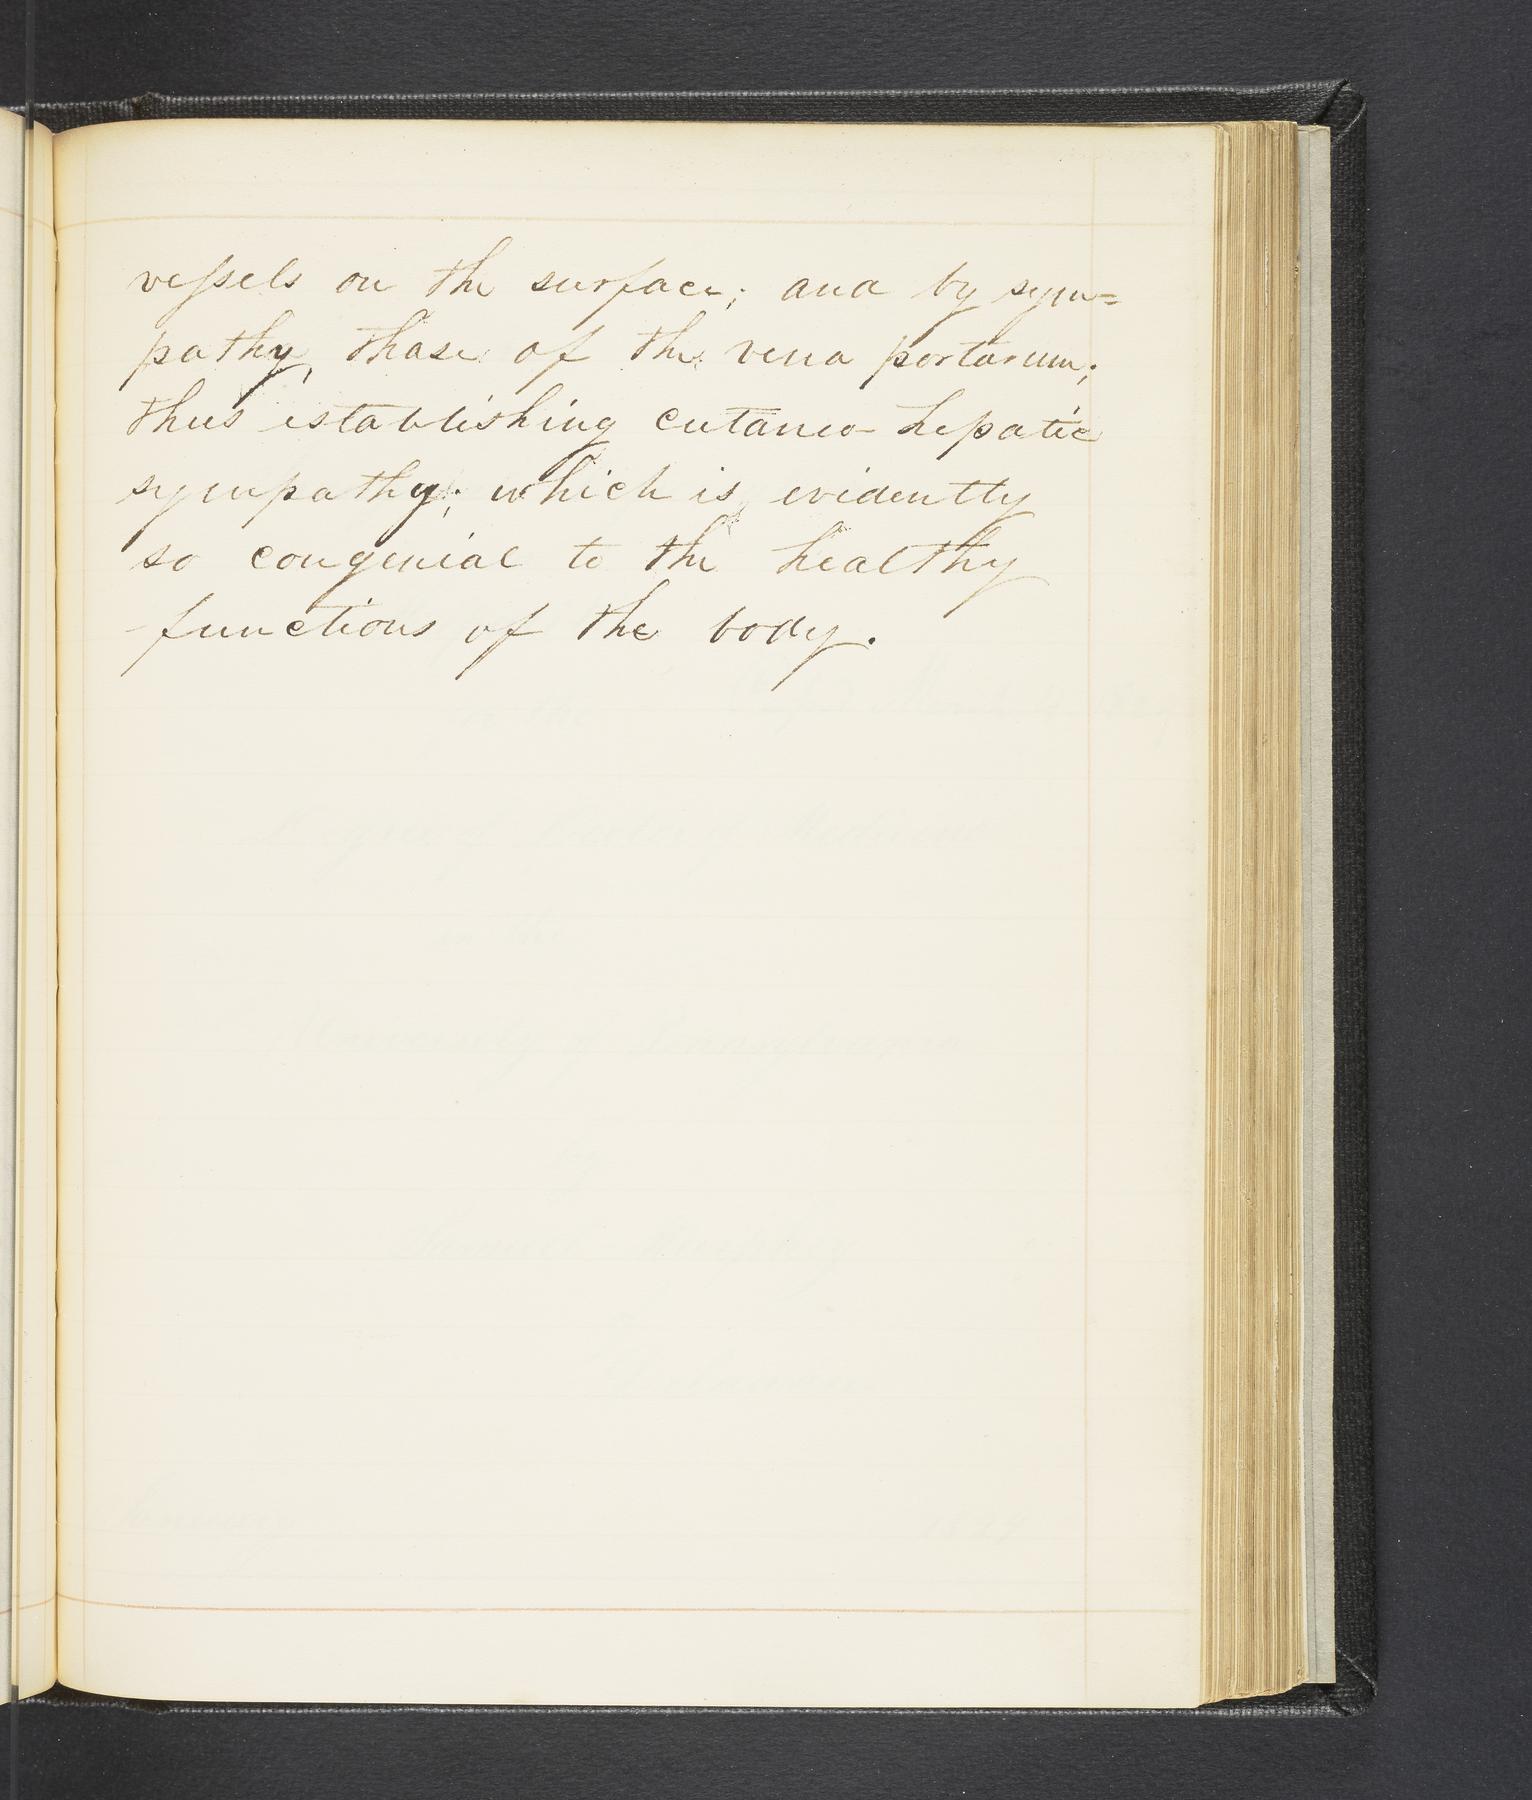 vessels on the surface; and by sym=
pathy, those of the vena portarum;
thus establishing cutaneo-hepatic
sympathy; which is evidently
so congenial to the healthy
functions of the body.
in the
University of Pennsylvania
1829